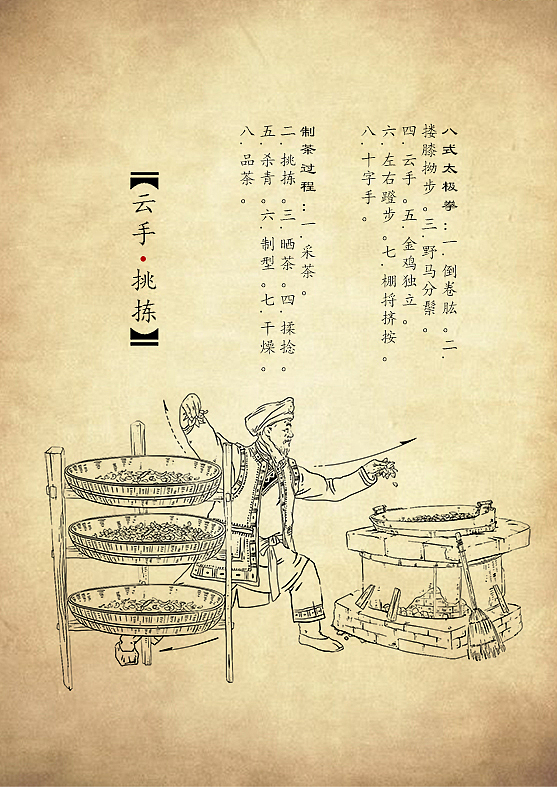 八式太极拳：一.倒卷肱。二.
搂膝拗步。三.野马分鬃。
四.云手。五.金鸡独立。
六.左右蹬步。七.棚捋挤按。
八.十字手。
制茶过程：一.采茶。
二.挑拣。三.晒茶。四.揉捻。
五.杀青。六.制型。七.干燥。
八.品茶。
【云手·挑拣】